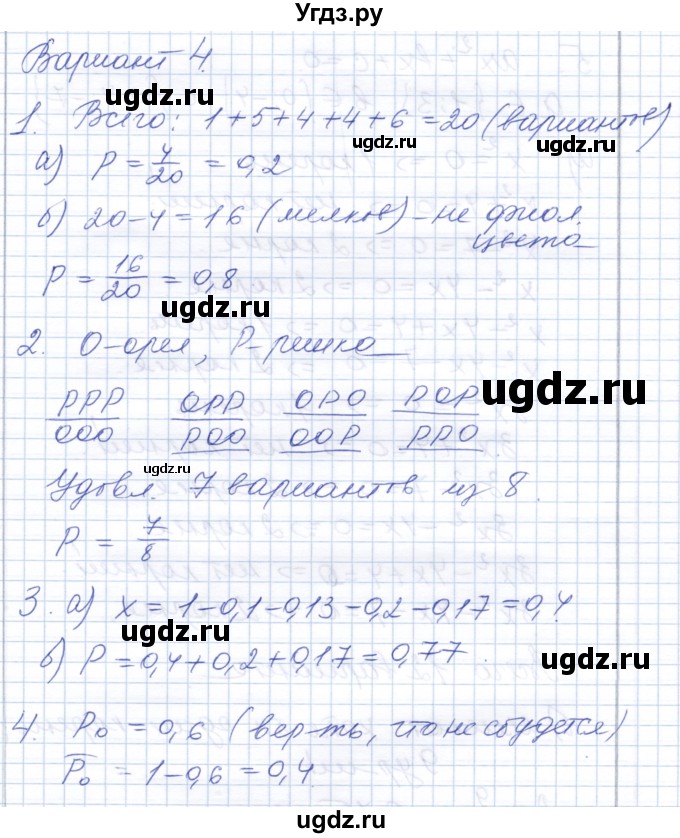 Угдз.ру
Вариант 4.
1. Всего: 1+5+4+4+6=20 (вариантов)
а) P = 4/20 = 0,2
б) 20-4=16 (мелков) - не фиол. цвета
P = 16/20 = 0,8
2. О-орел, Р-решка
РРР ОРР ОРО РОР
ООО РОО ООР РРО
Удовл. 7 вариантов из 8.
P = 7/8
3. а) x = 1-0,1-0,13-0,2-0,17=0,4.
б) P=0,4+0,2+0,17=0,77.
4. P₀ = 0,6 (вер-ть, что не сбудется)
P̅₀ = 1-0,6 = 0,4.
ugdz.ru
ugdz.ru
ugdz.ru
ugdz.ru
ugdz.ru
ugdz.ru
ugdz.ru
ugdz.ru
ugdz.ru
ugdz.ru
ugdz.ru
ugdz.ru